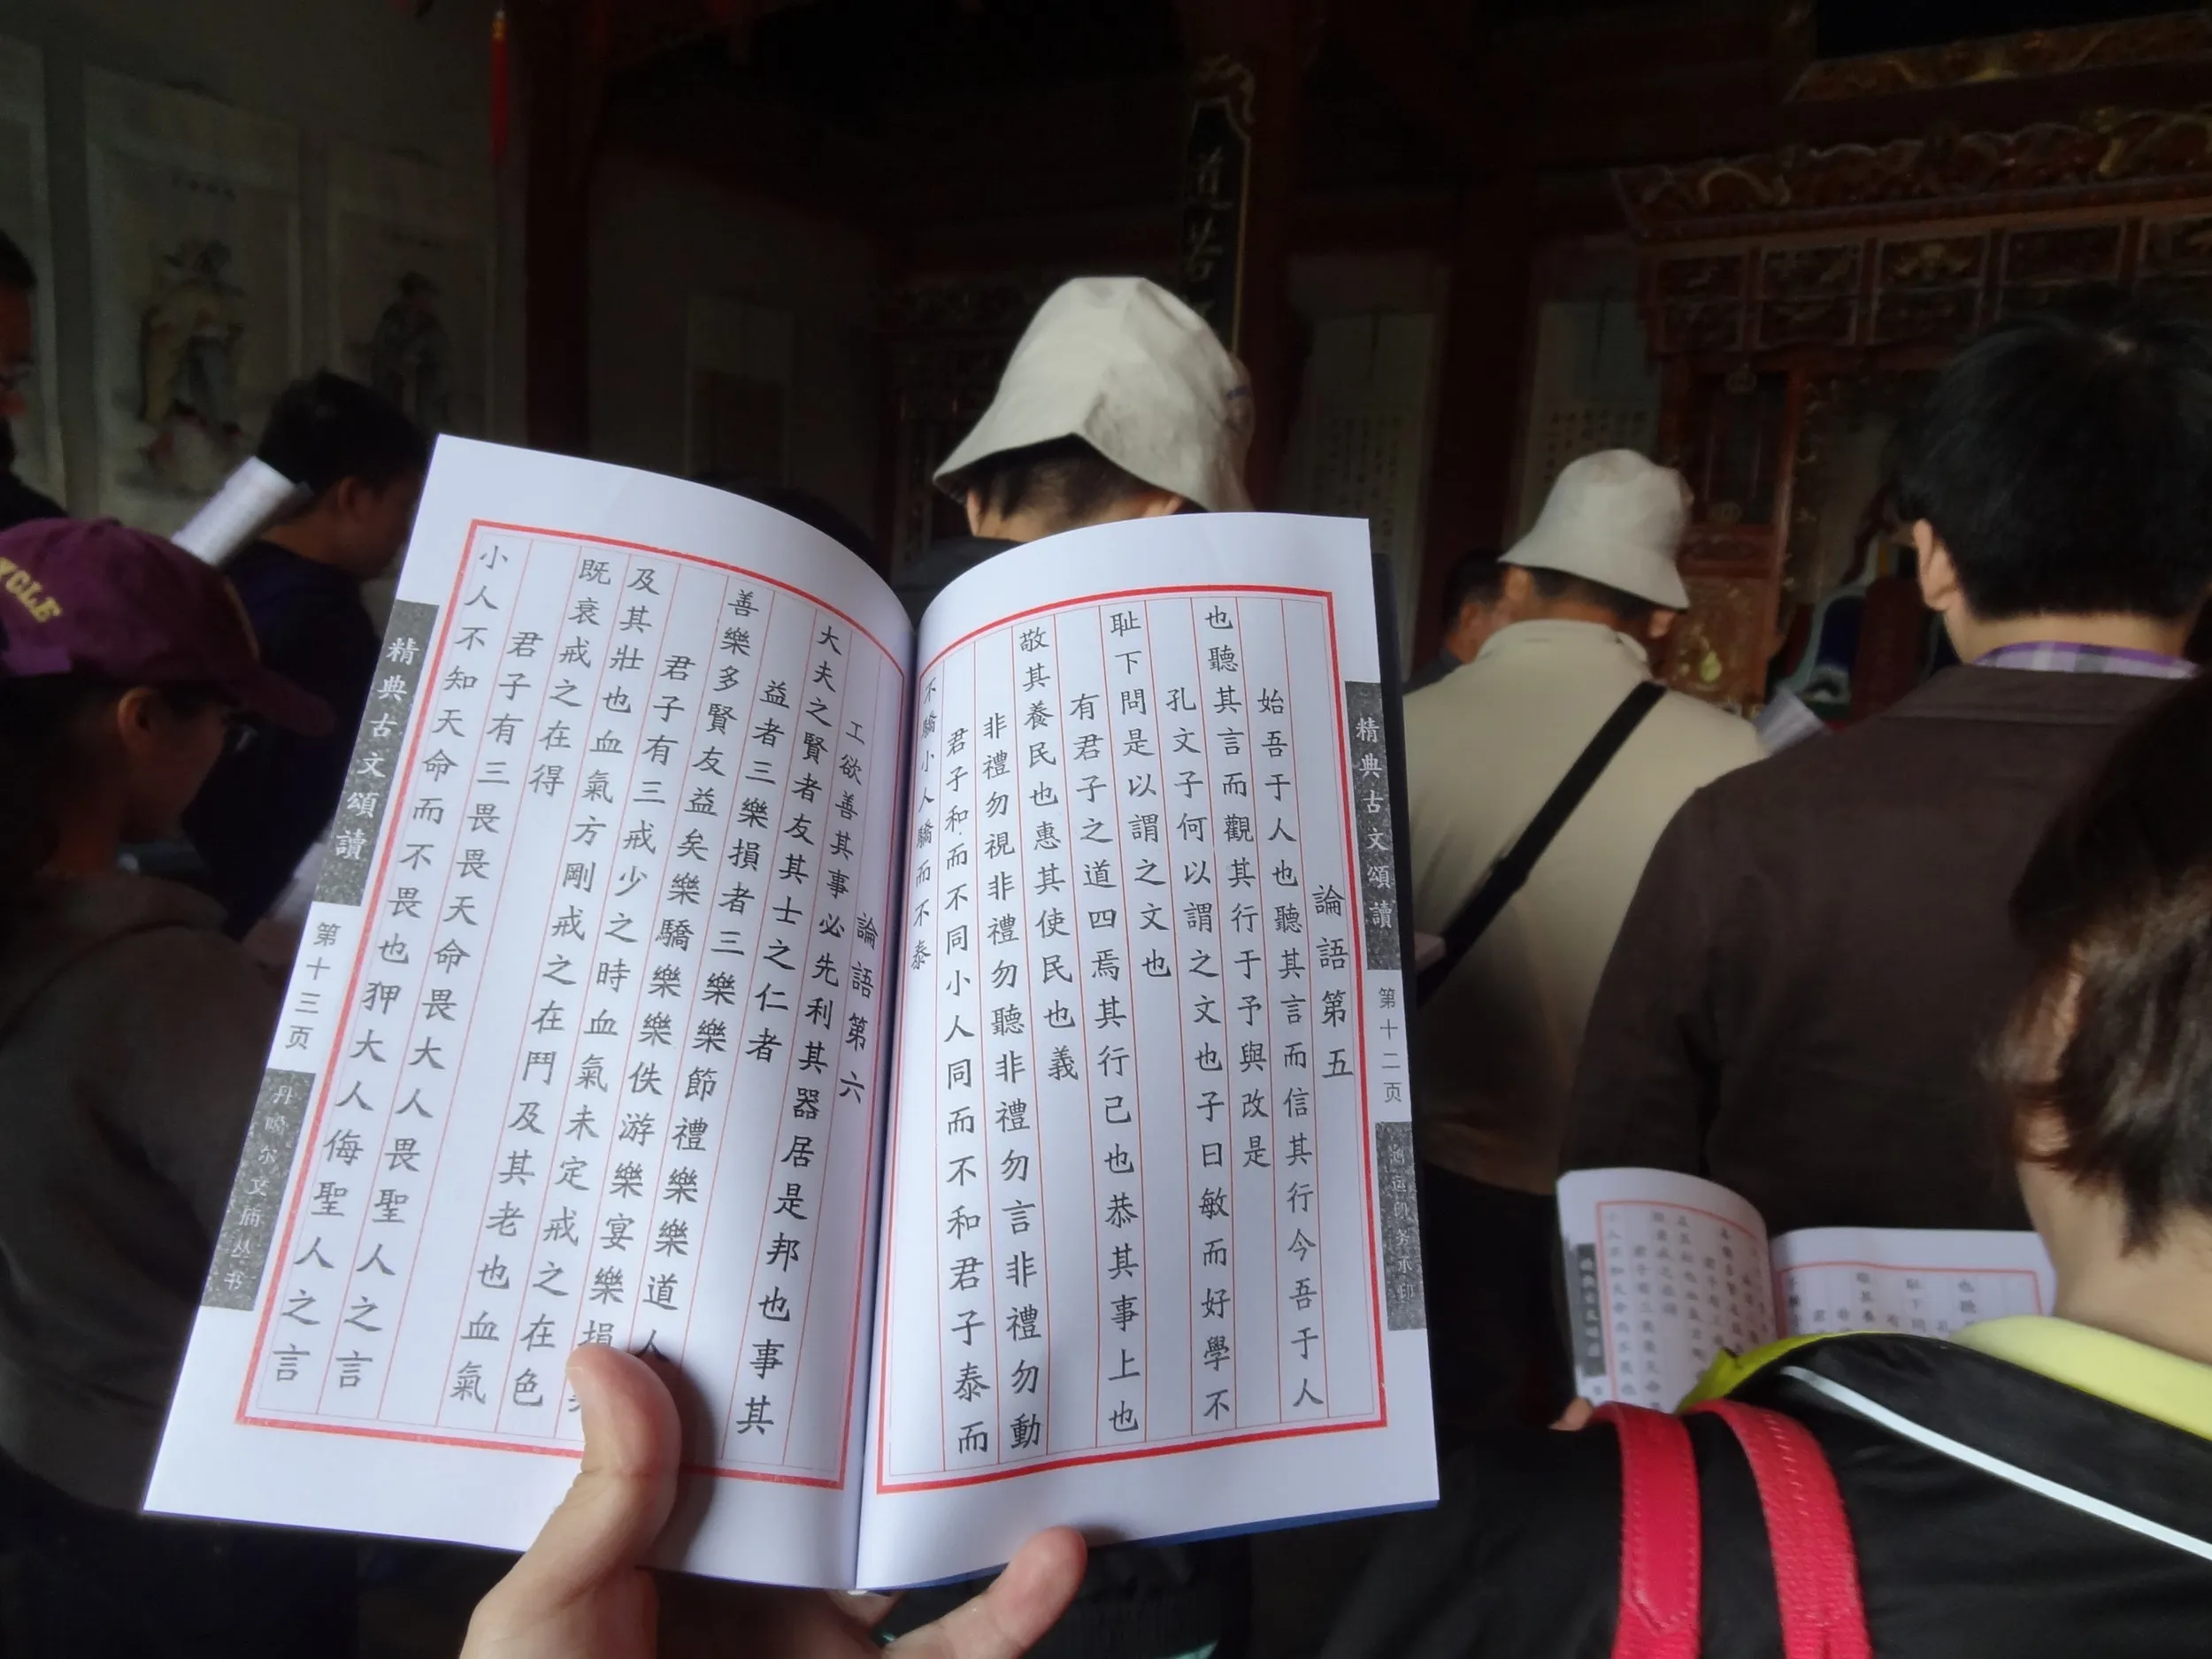 精典古文頌讀
第十二页
論語第五
始吾于人也聽其言而信其行今吾于人
也聽其言而觀其行于予與改是
孔文子何以謂之文也子曰敏而好學不
耻下問是以謂之文也
有君子之道四焉其行己也恭其事上也
敬其養民也惠其使民也義
非禮勿視非禮勿聽非禮勿言非禮勿動
君子和而不同小人同而不和君子泰而
不驕小人驕而不泰
論語第六
工欲善其事必先利其器居是邦也事其
大夫之賢者友其士之仁者
益者三樂損者三樂樂節禮樂樂道人
善樂多賢友益矣樂驕樂樂佚游樂宴樂損
君子有三戒少之時血氣未定戒之在色
及其壯也血氣方剛戒之在鬥及其老也血氣
既衰戒之在得
君子有三畏畏天命畏大人畏聖人之言
小人不知天命而不畏也狎大人侮聖人之言
精典古文頌讀
第十三页
丹噶尔文庙丛书
CLE